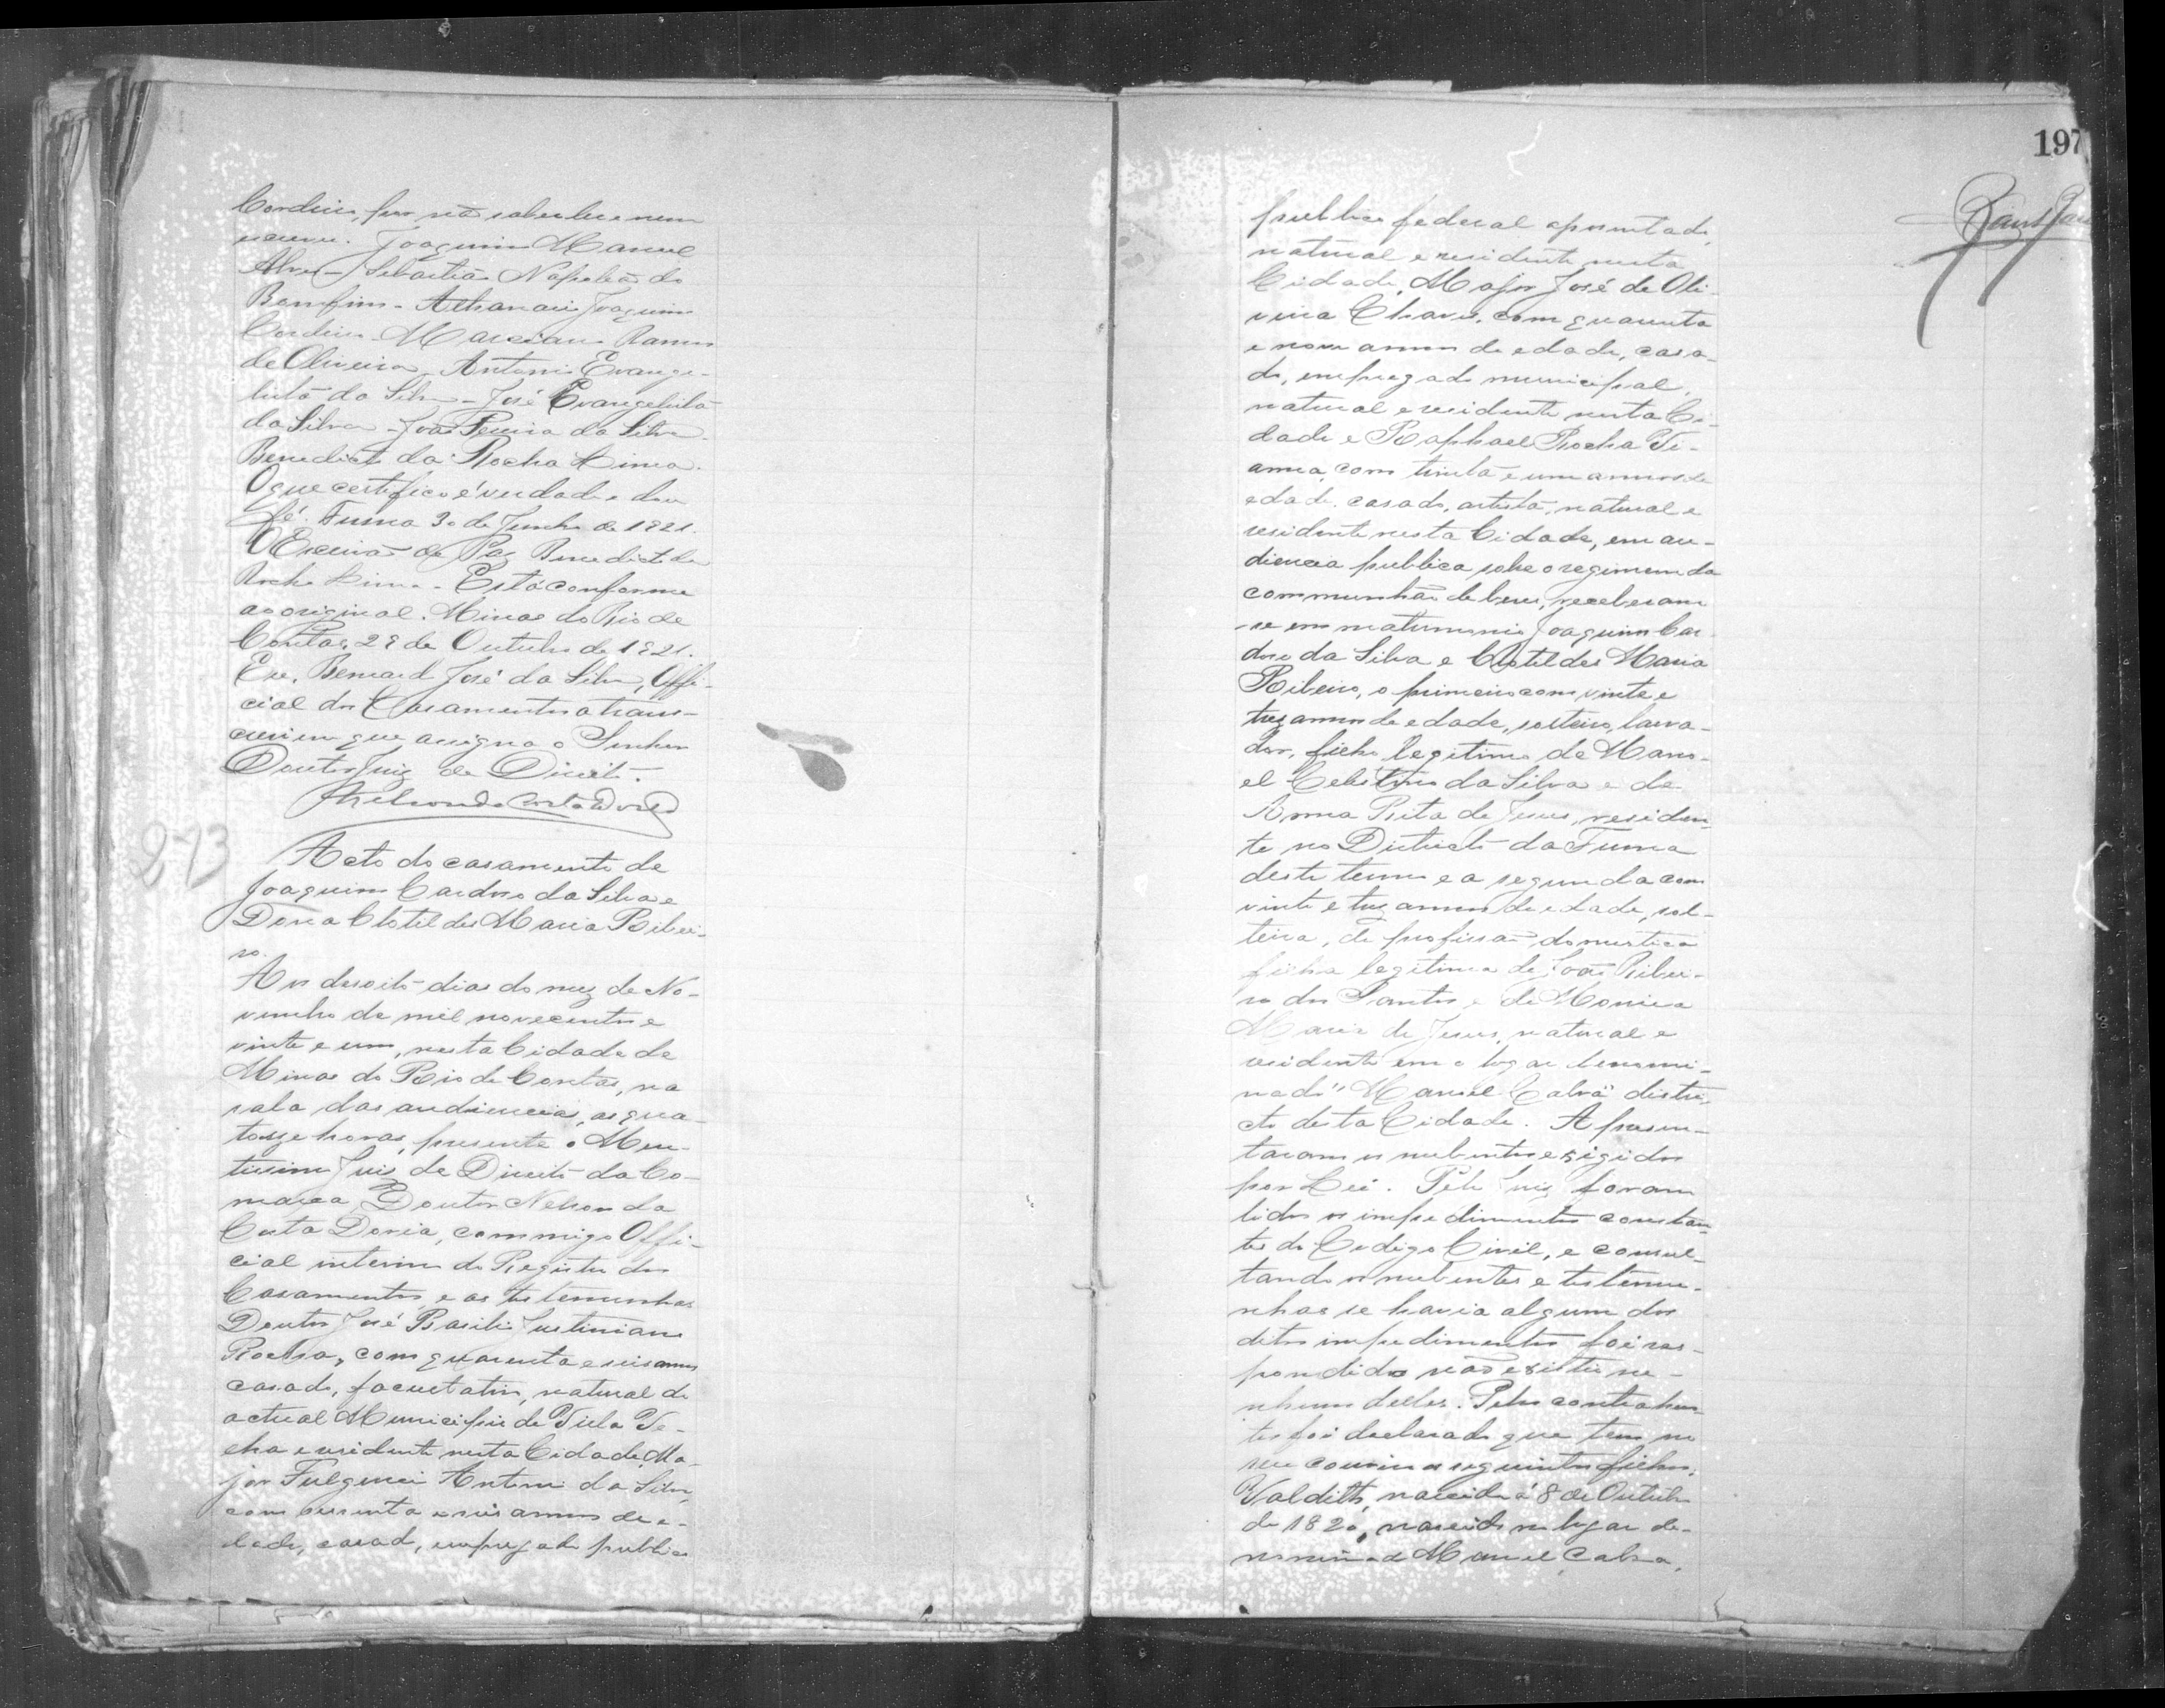 Cordeiro, por não saber ler e nem
escrever. Joaquim Manuel
Alves - Sebastião Napoleão do
Bomfim - Athanazio Joaquim
Cordeiro - Marciano Ramos
de Oliveira - Antonio Evange-
lista da Silva - José Evangelista
da Silva - João Pereira da Silva -
Benedicto da Rocha Lima.
O que certifico é verdade e dou
fé. Furna 30 de Junho de 1921.
O Escrivão de Paz Benedicto da
Rocha Lima - Está conforme
ao original. Minas do Rio de
Contas, 28 de Outubro de 1921.
Eu, Bernard José da Silva, Offi-
cial dos Casamentos a trans-
crevi em que assigna o Senhor
Doutor Juiz de Direito.
Nelson da Costa Doria
273
Acto do casamento de
Joaquim Cardoso da Silva e
Dona Clotildes Maria Ribei-
ro.
Aos desoito dias do mez de No-
vembro de mil novecentos e
vinte e um, nesta Cidade de
Minas do Rio de Contas, na
sala das audiencias, as qua-
torze horas, presente o Meri-
tissimo Juiz de Direito da Co-
marca, Doutor Nelson da
Costa Doria, commigo Offi-
cial interino do Registro dos
Casamentos, e as testemunhas
Doutor José Basilio Justiniano
Rocha, com quarenta e seis annos
casado, facultativo, natural do
actual Municipio de Villa Ve-
lha e residente nesta Cidade, Ma-
jor Fulgencio Antonio da Silva,
com sessenta e seis annos de e-
dade, casado, empregado publico
197
publico federal aposentado,
natural e residente nesta
Cidade, Major José de Oli-
veira Chaves, com quarenta
e nove annos de edade, casa-
do, empregado municipal,
natural e residente nesta Ci-
dade e Raphael Rocha Vi-
anna, com trinta e um annos de
edade, casado, artista, natural e
residente nesta Cidade, em au-
diencia publica sobe o regimem da
communhão de bens, receberam
-se em matrimonio Joaquim Car-
doso da Silva e Clotildes Maria
Ribeiro, o primeiro com vinte e
trez annos de edade, solteiro, lavra-
dor, filho legitimo de Mano-
el Celestino da Silva e de
Anna Rita de Jesus, residen-
te no Districto da Furna
deste termo e a segunda com
vinte e trez annos de edade, sol-
teira, de profissão domestica
filha legitima de João Ribei-
ro dos Santos e de Monica
Maria de Jesus, natural e
residente em o logar denomi-
nado "Manuel Calvo" distri-
cto desta Cidade. Apresen-
taram os nubentes exigidos
por Lei. Pelo Juiz foram
lidos os impedimentos constan-
tes do Codigo Civil, e consul-
tando os nubentes e testemu-
nhas se havia algum dos
ditos impedimentos foi res-
pondido não existir ne-
nhum delles. Pelos contrahen-
tes foi declarado que tem no
seu os seguintes filhos:
Valdith, nascida á 8 de Outubro
de 1820, nascido no logar de-
nominado Manuel Calva,